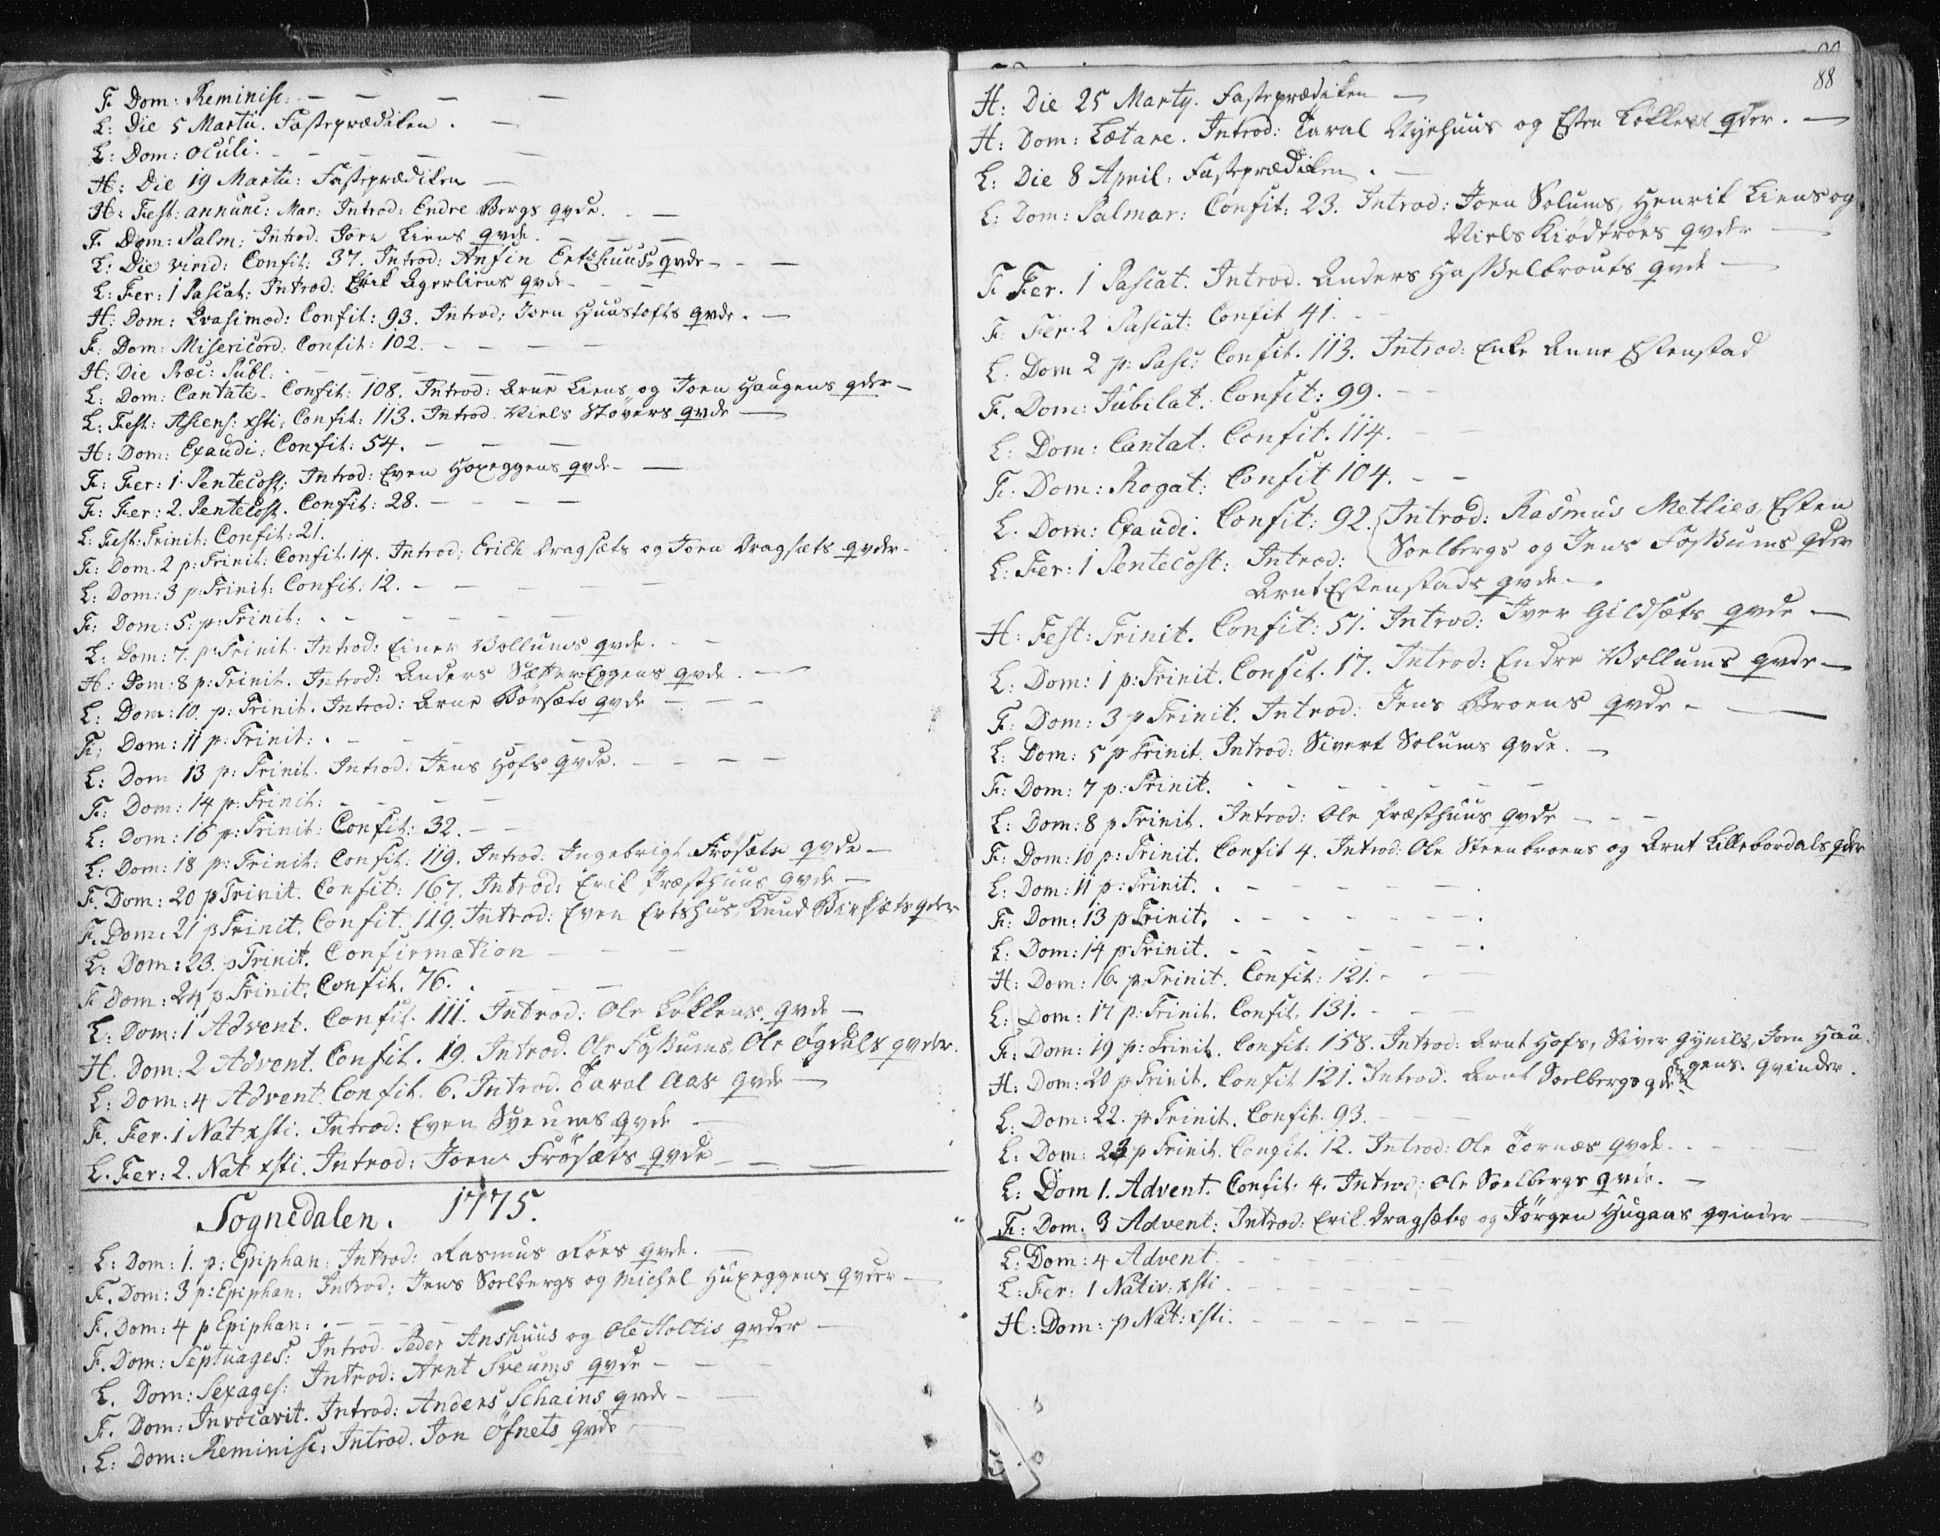 F. Dom: Reminisc: - - - -
L: Die 5 Martii. Fasteprædiken. -
L: Dom: Oculi. - - - -
H: Die 19 Martii: Fasteprædiken -
H: Fest: annunc: Mar: Introd: Endre Bergs qvde. -
F. Dom: Palm: Introd: Joen Liens qvde. - - -
L: Die virid: Confit: 37. Introd: Anfin Ertzhuus qvde - -
L: Fer: 1 Pascat: Introd: Erik Agerliens qvde - -
H: Dom: Qvasimod: Confit: 93. Introd: Joen Huustofts qvde. -
F. Dom: Misericord: Confit: 102. - - -
H: Die Præc: Publ: - - - -
L: Dom: Cantate. Confit: 108. Introd: Arne Liens og Joen Haugens qder -
L: Fest: Ascens: xsti: Confit: 113. Introd. Niels Støvers qvde -
H: Dom: Exaudi: Confit: 54. - - -
F: Fer: 1. Pentecost: Introd: Even Hoxeggens qvde - -
F: Fer: 2. Pentecost. Confit: 28. - - -
L: Fest: Trinit: Confit: 21.
F: Dom. 2 p: Trinit: Confit. 14. Introd: Erich Dragsæts og Joen Dragsæts qvder -
L: Dom: 3 p: Trinit: Confit: 12. - - -
F: Dom: 5. p: Trinit: - - - -
L: Dom: 7. p: Trinit. Introd: Einer Vollums qvde. - -
H: Dom: 8 p: Trinit. Introd: Anders Sætter Eggens qvde. -
L: Dom: 10. p: Trinit. Introd: Arne Børsæts qvde - - -
F: Dom: 11 p: Trinit: - - - -
L: Dom 13 p: Trinit. Introd: Jens Hofs qvde. - - -
F: Dom: 14 p: Trinit: - - - -
L: Dom: 16 p: Trinit: Confit: 32. - -
L: Dom: 18 p: Trinit: Confit. 119. Introd: Ingebrigt Frøsæts qvde -
F. Dom: 20 p Trinit. Confit: 167. Introd: Erik Præsthuus qvde -
F. Dom: 21 p Trinit. Confit. 119. Introd: Even Ertshus, Knud Birksæts qder
L: Dom: 23. p Trinit. Confirmation - -
F Dom: 24 p Trinit. Confit. 76. - - -
L: Dom: 1 Advent. Confit. 111. Introd: Ole Løkkens qvde -
H. Dom: 2 Advent. Confit. 19. Introd. Ole Foßums, Ole Øgdals qvder.
L: Dom: 4 Advent. Confit. 6. Introd. Taral Aas qvde -
F. Fer. 1 Nat xsti. Introd: Even Sveums qvde -
L. Fer: 2. Nat xsti. Introd: Joen Frøsæts qvde - -
Sognedalen. 1775.
L: Dom: 1. p: Epiphan: Introd: Rasmus Røes qvde. -
F. Dom: 3 p: Epiphan: Introd: Jens Soelbergs og Michel Huxeggens qvder -
F. Dom: 4 p Epiphan: - - -
F. Dom: Septuages: Introd. Peder Anshuus og Ole Holtis qvder -
L. Dom: Sexages: Introd: Arnt Sveums qvde - -
F. Dom: Invocavit. Introd: Anders Schains qvde - -
L: Dom: Reminisc: Introd. Jon Øfnets qvde -
88
H: Die 25 Marty. Fasteprædiken -
H: Dom: Lætare. Introd: Taral Nyehuus og Esten Løkkens qder. -
L: Die 8 April: Fasteprædiken. -
L: Dom: Palmar: Confit: 23. Introd: Joen Solums, Henrik Liens og
Niels Kiødtrøes qvder -
F. Fer. 1 Pascat. Introd. Anders Haßelbrouts qvde -
F. Fer. 2 Pascat: Confit 41. - -
L. Dom 2 p: Pasc: Confit. 113. Introd: Enke Anne Estenstad
F. Dom: Jubilat. Confit: 99. -
L: Dom: Cantat. Confit. 114. - -
F: Dom: Rogat: Confit 104. - -
L. Dom: Exaudi. Confit: 92. Introd: Rasmus Metlies, Esten
Soelbergs og Jens Foßums qder
L: Fer: 1 Pentecost: Introd:
Arnt Estenstads qvde -
H: Fest: Trinit. Confit: 51. Introd: Iver Gildsæts qvde -
L: Dom: 1 p: Trinit. Confit. 17. Introd: Endre Vollums qvde -
F: Dom: 3 p Trinit. Introd: Jens Broens qvde - -
L: Dom: 5 p Trinit. Introd: Sivert Solums qvde. -
F: Dom: 7 p: Trinit. - - - -
L: Dom: 8 p Trinit. Introd: Ole Præsthuus qvde - - -
F: Dom: 10 p: Trinit. Confit 4. Introd: Ole Steenbroens og Arnt Lillebordals qder
L: Dom: 11 p: Trinit. - - - -
F: Dom: 13 p Trinit. - - - -
L: Dom: 14 p Trinit. - - - -
H: Dom: 16. p: Trinit. Confit: 121. - -
L: Dom: 17 p: Trinit. Confit. 131. - -
F: Dom: 19 p: Trinit. Confit: 158. Introd: Arnt Hofs, Siver Gynils, Joen Hau-
gens. qvinder.
H: Dom: 20 p Trinit. Confit 121. Introd. Arnt Soelbergs qde
L: Dom: 22. p Trinit. Confit. 93. - -
L: Dom: 23 p Trinit. Confit. 12. Introd: Ole Tornæs qvde. -
L: Dom 1. Advent. Confit. 4. Introd: Ole Soelbergs qvde. -
F: Dom. 3 Advent: Introd: Erik Dragsæts og Jørgen Hugaas qvinder -
L: Dom: 4 Advent. - - -
L: Fer: 1 Nativ: xsti. - - -
H: Dom: p Nat: xsti. - - -